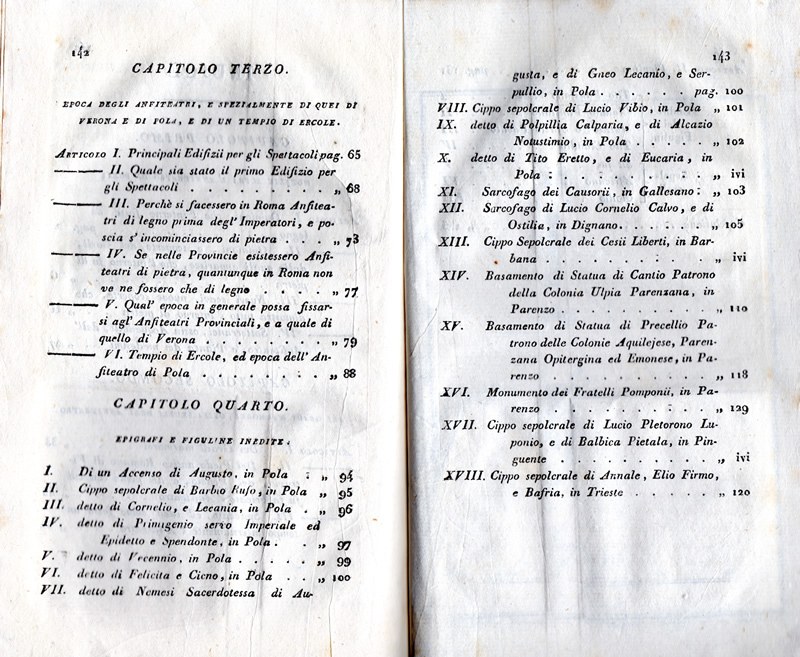 142
CAPITOLO TERZO.
EPOCA DEGLI ANFITEATRI, E SPEZIALMENTE DI QUEI DI
VERONA E DI POLA, E DI UN TEMPIO DI ERCOLE.
ARTICOLO I. Principali Edifizii per gli Spettacoli pag. 65
——— II. Quale sia stato il primo Edifizio per
gli Spettacoli . . . . . . . . . „ 68
——— III. Perchè si facessero in Roma Anfitea-
tri di legno prima degl' Imperatori, e po-
scia s' incominciassero di pietra . . . „ 73
——— IV. Se nelle Provincie esistessero Anfi-
teatri di pietra, quantunque in Roma non
ve ne fossero che di legno . . . . „ 77
——— V. Qual' epoca in generale possa fissar-
si agl' Anfiteatri Provinciali, e a quale di
quello di Verona . . . . . . . „ 79
——— VI. Tempio di Ercole, ed epoca dell' An-
fiteatro di Pola . . . . . . . „ 88
CAPITOLO QUARTO.
EPIGRAFI E FIGULINE INEDITE.
I. Di un Accenso di Augusto, in Pola . „ 94
II. Cippo sepolcrale di Barbio Rufo, in Pola „ 95
III. detto di Cornelio, e Lecania, in Pola . „ 96
IV. detto di Primigenio servo Imperiale ed
Epidetto e Spendonte, in Pola . . „ 97
V. detto di Vecennio, in Pola . . . . „ 99
VI. detto di Felicita e Cicno, in Pola . . „ 100
VII. detto di Nemesi Sacerdotessa di Au-
143
gusta, e di Gneo Lecanio, e Ser-
pullio, in Pola . . . . . . pag. 100
VIII. Cippo sepolcrale di Lucio Vibio, in Pola „ 101
IX. detto di Polpillia Calparia, e di Alcazio
Notustimio, in Pola . . . . . „ 102
X. detto di Tito Eretto, e di Eucaria, in
Pola : . . . . . . . . . „ ivi
XI. Sarcofago dei Causorii, in Gallesano : „ 103
XII. Sarcofago di Lucio Cornelio Calvo, e di
Ostilia, in Dignano. . . . . . . „ 105
XIII. Cippo Sepolcrale dei Cesii Liberti, in Bar-
bana . . . . . . . . . . „ ivi
XIV. Basamento di Statua di Cantio Patrono
della Colonia Ulpia Parenzana, in
Parenzo . . . . . . . . . „ 110
XV. Basamento di Statua di Precellio Pa-
trono delle Colonie Aquilejese, Paren-
zana Opitergina ed Emonese, in Pa-
renzo . . . . . . . . . . „ 118
XVI. Monumento dei Fratelli Pomponii, in Pa-
renzo . . . . . . . . . . „ 129
XVII. Cippo sepolcrale di Lucio Pletorono Lu-
ponio, e di Balbica Pietala, in Pin-
guente . . . . . . . . . „ ivi
XVIII. Cippo sepolcrale di Annale, Elio Firmo,
e Bafria, in Trieste . . . . . „ 120